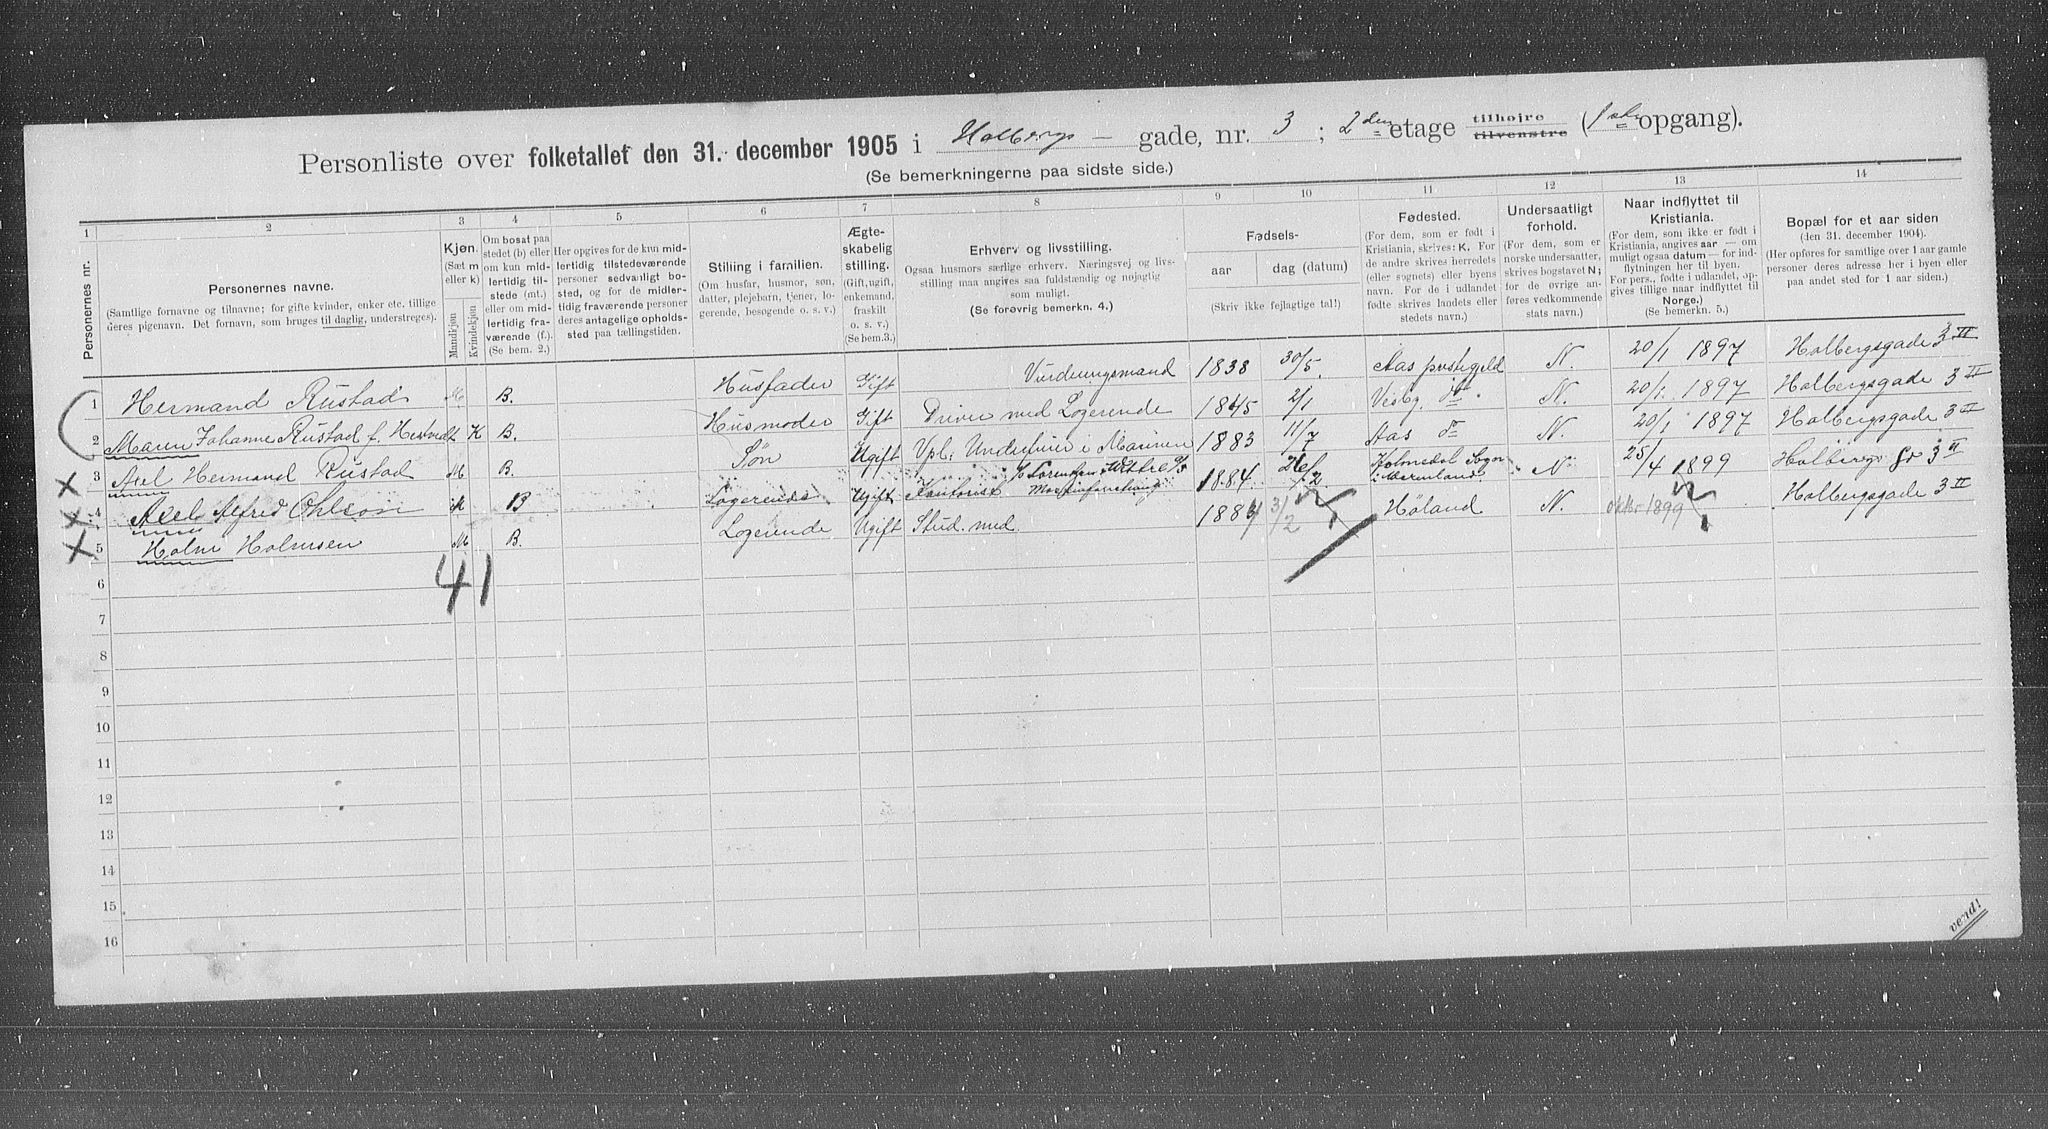 Personliste over folketallet den 31. december 1905 i Holbergs – gade, nr. 3; 2den etage tilhøire tilvenstre (1ste opgang).
(Se bemerkningerne paa sidste side.)
1 2 3 4 5 6 7 8 9 10 11 12 13 14
Personernes nr.
Personernes navne.
(Samtlige fornavne og tilnavne; for gifte kvinder, enker etc. tillige
deres pigenavn. Det fornavn, som bruges til daglig, understreges).
Kjøn.
(Sæt m
eller k)
Mandkjøn
Kvindekjøn
Om bosat paa
stedet (b) eller
om kun mid-
lertidig til-
stede (mt.)
eller om mid-
lertidig fra-
værende (f.).
(Se bem. 2.)
Her opgives for de kun mid-
lertidig tilstedeværende
personer sedvanligt bo-
sted, og for de midler-
tidig fraværende personer
deres antagelige opholds-
sted paa tællingstiden.
Stilling i familien.
(Om husfar, husmor, søn,
datter, plejebarn, tjener, lo-
gerende, besøgende o. s. v.)
Ægte-
skabelig
stilling.
(Gift, ugift,
enkemand,
fraskilt
o. s. v.)
(Se bem.3.)
Erhverv og livsstilling.
Ogsaa husmors særlige erhverv. Næringsvej og livs-
stilling maa angives saa fuldstændig og nøjagtig
som muligt.
(Se forøvrig bemerkn. 4.)
Fødsels-
aar dag (datum)
(Skriv ikke fejlagtige tal!)
Fødested.
(For dem, som er født i
Kristiania, skrives: K. For
de andre skrives herredets
(eller sognets) eller byens
navn. For de i udlandet
fødte skrives landets eller
stedets navn.)
Undersaatligt
forhold.
(For dem, som er
norske undersaatter,
skrives bogstavet N;
for de øvrige an-
føres vedkommende
stats navn.)
Naar indflyttet til
Kristiania.
(For dem, som ikke er født i
Kristiania, angives aar — om
muligt ogsaa datum — for ind-
flytningen her til byen.
For pers., fødte i udlandet, op-
gives tillige naar indflyttet til
Norge.)
(Se bemerkn. 5.)
Bopæl for et aar siden
(den 31. december 1904).
(Her opføres for samtlige over 1 aar gamle
personer deres adresse her i byen eller
paa andet sted for 1 aar siden.)
1 Hermand Rustad M. B. Husfader Gift Vurderingsmand 1838 30/5. Aas prstegjeld N. 20/1 1897 Holbergsgade 3 II
2 Maren Johanne Rustad f. K B. Husmoder Gift Driver med Logerende 1845 2/1 Vesby do N. 20/1. 1897 Holbergsgade 3 II
3 Axel Hermand Rustad M B. Søn Ugift Vpl. Underfuer i Marinen 1883 11/7 Aas do N. 20/1 1897 Holbergsgade 3 II
4 Axel Alfred Ohlson M B Logerende Ugift Kontorist 1884 /2 Sogn N 25/4 1899 Holbergs gd 3 II
5 Holm Holmsen M B. Logerende Ugift Stud. med 1884 3/2 Høland N. oktbr 1899 Holbergsgade 3 II
41
6
7
8
9
10
11
12
13
14
15
16
vend!